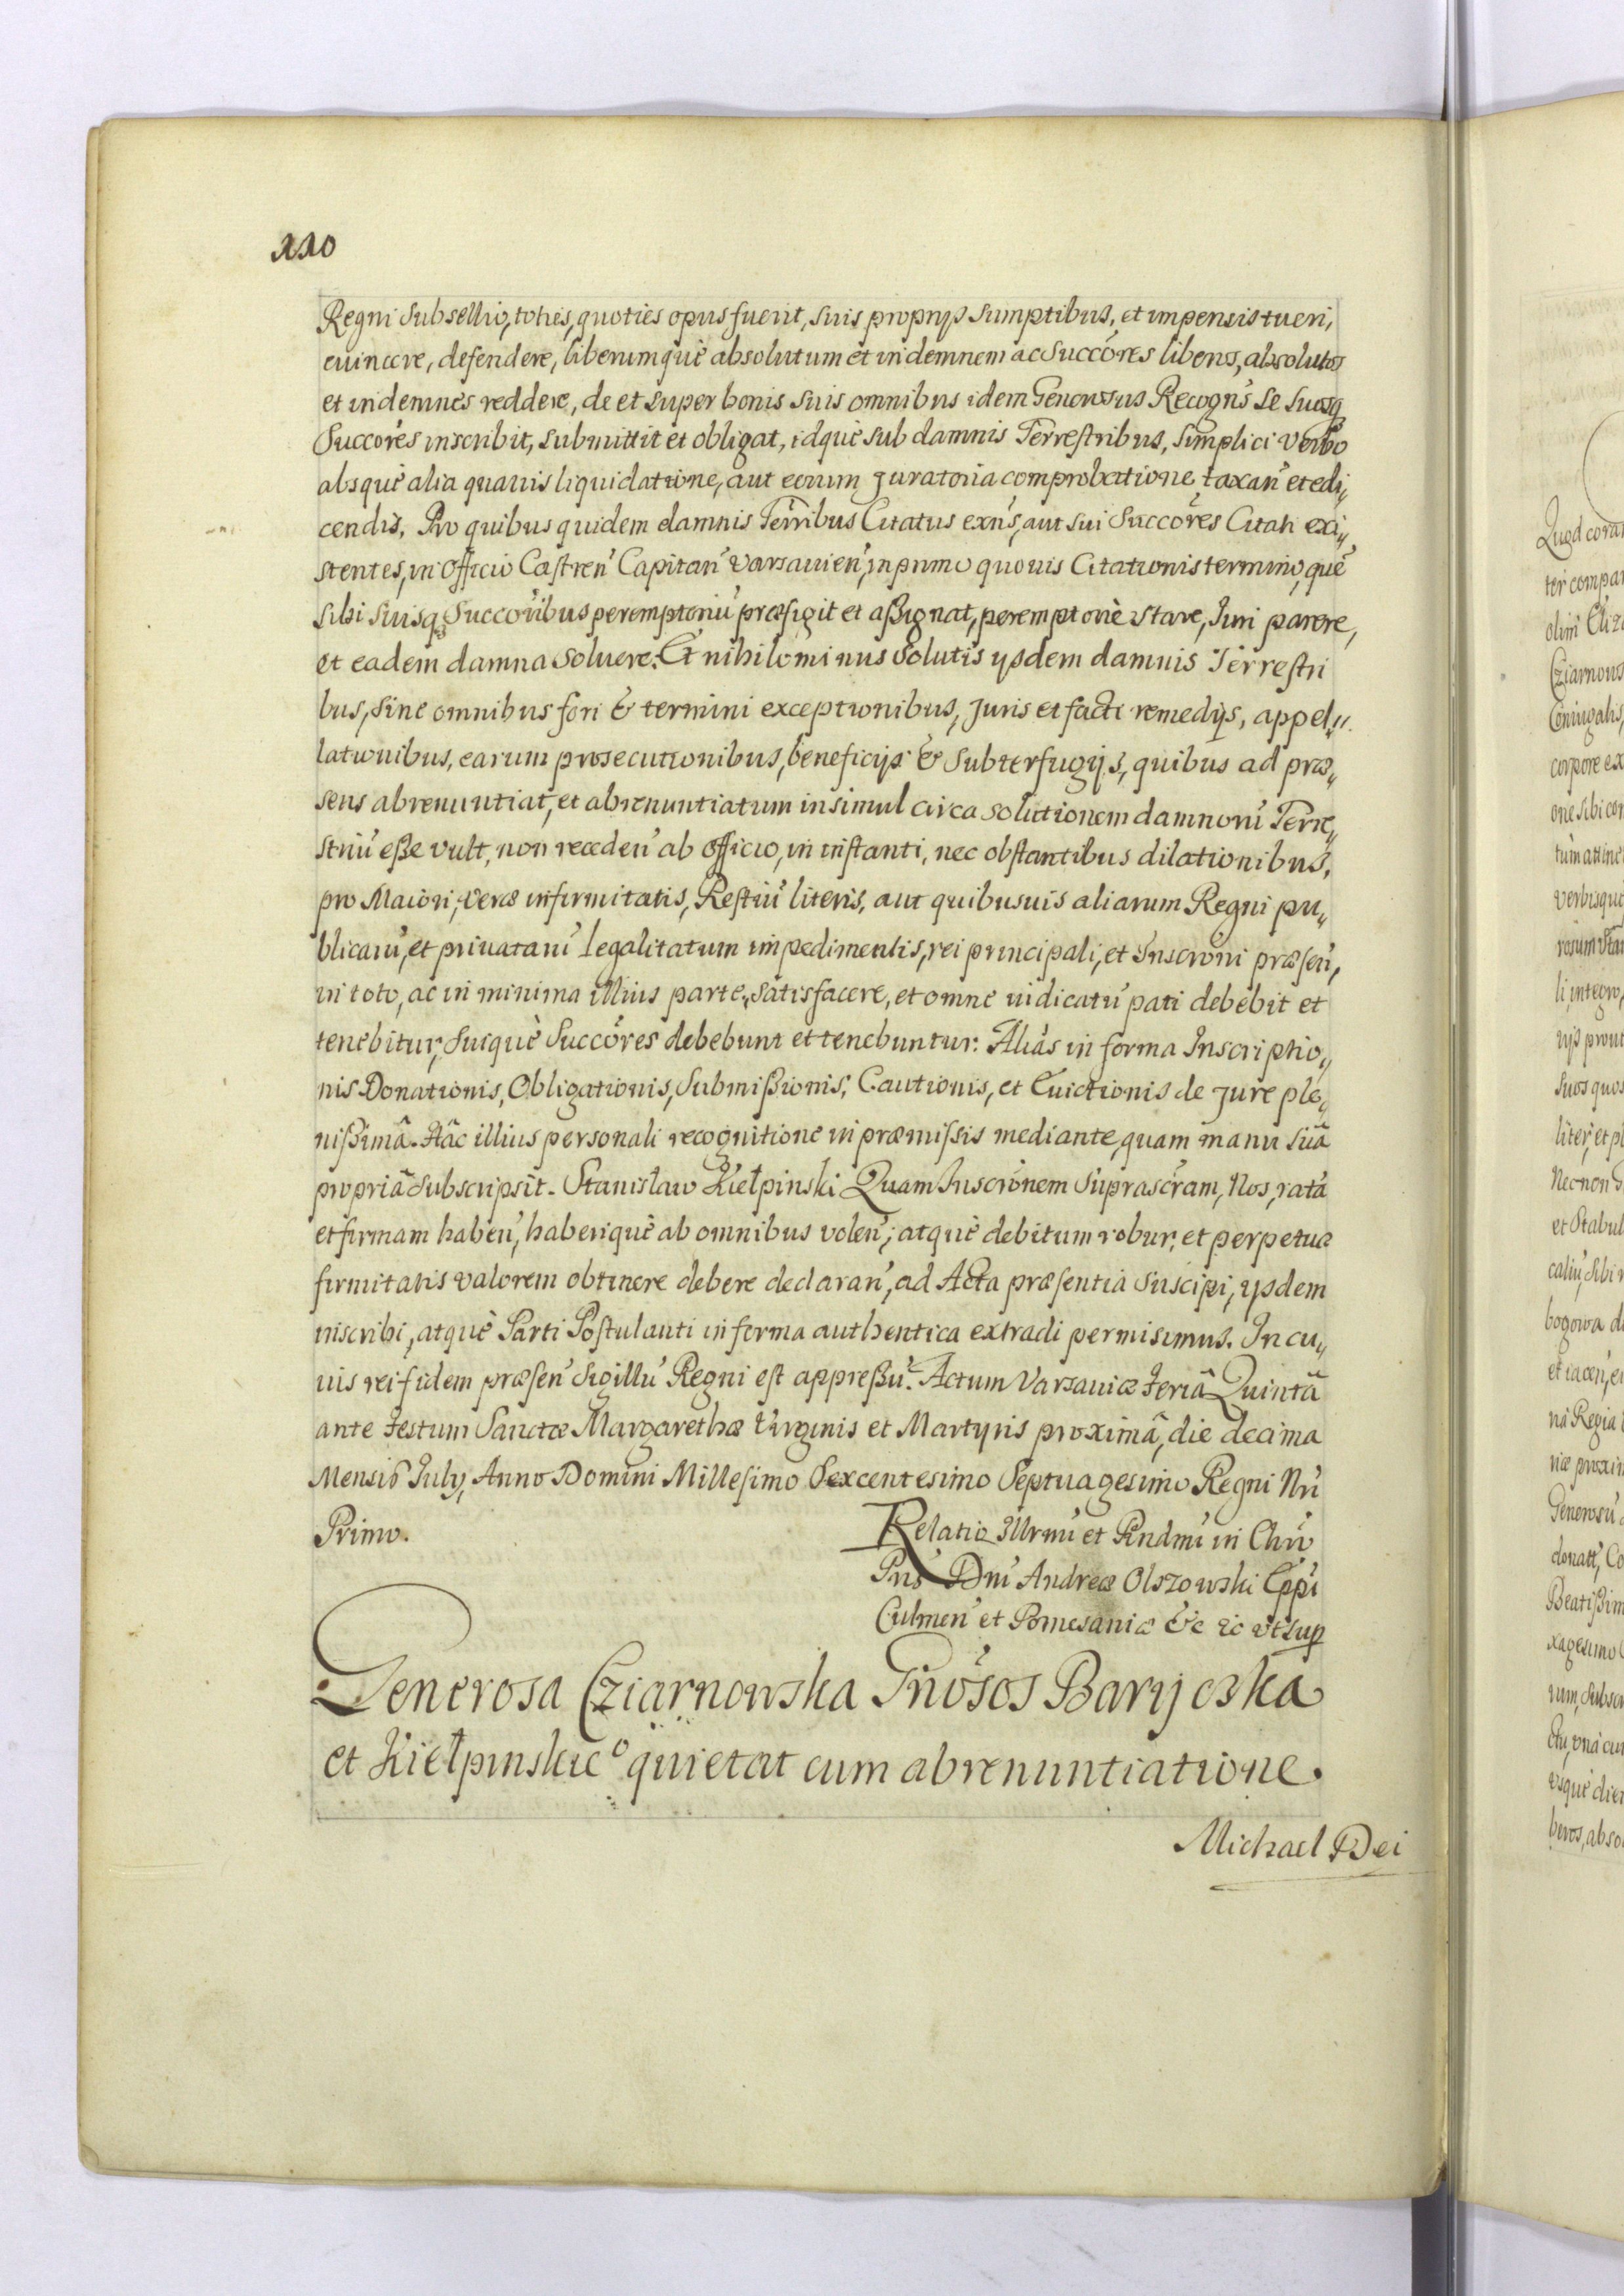 110
Regni Subsellio, toties, quoties opus fuerit, suis proprijs sumptibus, et impensis tueri,
euincere, defendere, liberumquè absolutum et indemnem ac Succóres liberos, absolutos
et indemnes reddere, de et super bonis suis omnibus idem Generosus Recogns̃ se suosq3
Succóres inscribit, submittit et obligat, idquè sub damnis Terrestribus, simplici verbo
absquè alia quauis liquidatione, aut eorum juratoria comprobatione taxan̄ et edi„
cendis. Pro quibus quidem damnis Terribus Citatus exñs, aut sui Succóres Citati exi„
stentes, in Officio Castren̄ Capitan̄ Varsauien̄, in primo quouis Citationis termino, què
sibi suisq3 Succoribus peremptoriū præfigit et aßignat, peremptoriè stare, Juri parere,
et eadem damna soluere. Et nihilominus solutis ijsdem damnis Terrestri
bus, sine omnibus fori & termini exceptionibus, juris et facti remedijs, appel„
lationibus, earum prosecutionibus, beneficijs & subterfugijs, quibus ad præ„
sens abrenuntiat, et abrenuntiatum insimul circa solutionem damnorū Terre„
striū eße vult, non receden̄ ab officio, in instanti, nec obstantibus dilationibus,
pro Maiori, veræ infirmitatis, Restiū literis, aut quibusuis aliarum Regni pu„
blicarū, et priuatarū legalitatum impedimentis, rei principali, et Inscroni præsen̄,
in toto, ac in minima illius parte, satisfacere, et omne iudicatū pati debebit et
tenebitur, suiquè Succóres debebunt et tenebuntur. Aliàs in forma Inscriptio„
nis Donationis, Obligationis, Submißionis, Cautionis, et Euictionis de jure ple„
nißimâ. Hâc illius personali recognitione in præmissis mediante, quam manu suâ
propriâ subscripsit. Stanisław Kiełpinski Quam Inscrónem suprascram, Nos, ratā
et firmam haben̄, haberiquè ab omnibus volen̄, atquè debitum robur, et perpetuæ
firmitatis valorem obtinere debere declaran̄, ad Acta præsentia suscipi, ijsdem
inscribi, atquè Parti Postulanti in forma authentica extradi permisimus. In cu„
ius rei fidem præsen̄ Sigillū Regni est appreßū. Actum Varsauiæ Feriâ Quintâ
ante Festum Sanctæ Margarethæ Virginis et Martyris proximâ, die decima
Mensis July, Anno Domini Millesimo Sexcentesimo Septuagesimo Regni Nri
Primo.
Relatio Illrmi et Rndmi in Chrō
Pris Dni Andreæ Olszowski Eppi
Culmen̄ et Pomesaniæ &c &c vt sup
Generosa Cziarnowska Gnósos Baryczka
et Kiełpinskie quietat cum abrenuntiatione.
Michael Dei